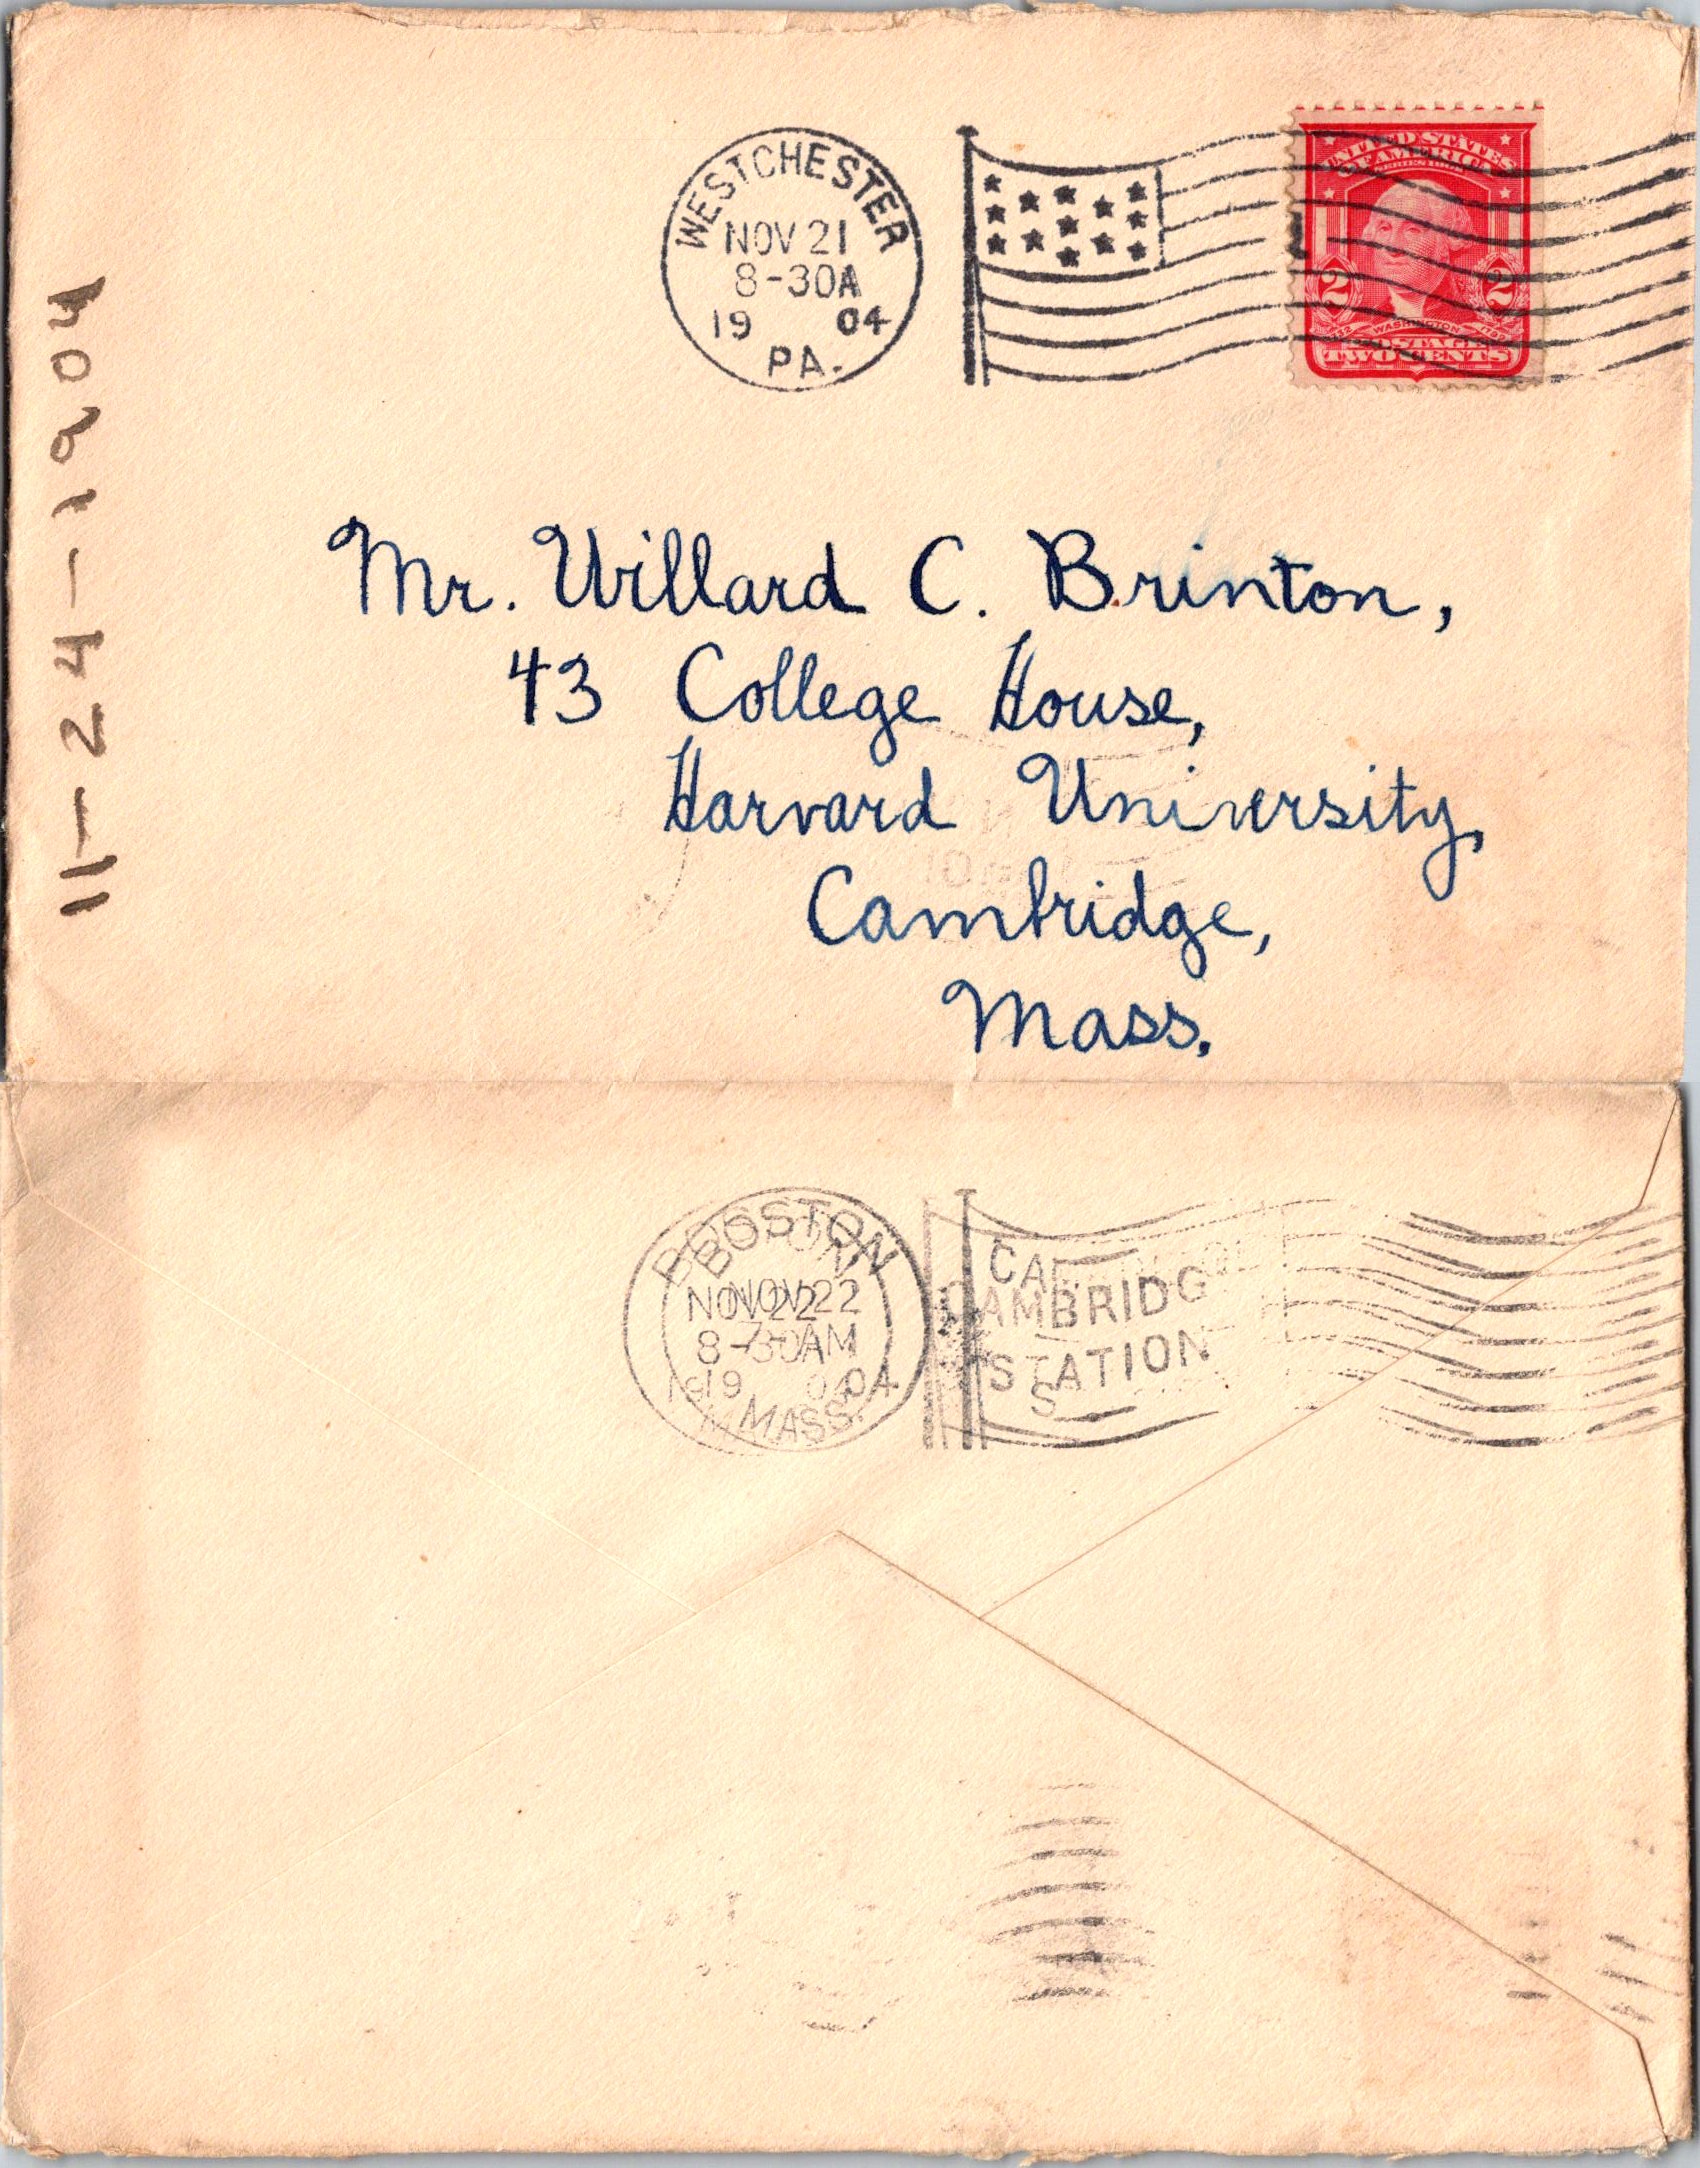 WESTCHESTER
NOV 21
8-30A
19 04
PA.
UNITED STATES
OF AMERICA
2 2
WASHINGTON
POSTAGE
TWO CENTS
11-24-1904
Mr. Willard C. Brinton,
43 College House,
Harvard University,
Cambridge,
Mass.
BOSTON
NOV 22
8-30AM
19 04
MASS.
CAMBRIDG
STATION